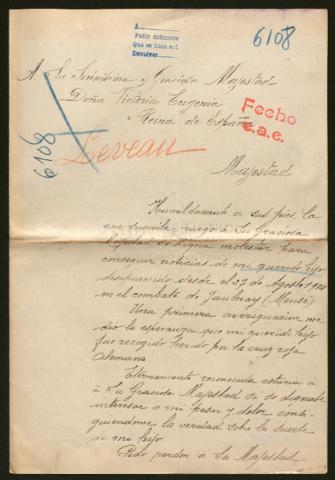 A
Pedir informes
Que se hace así
Devolver
6108
A Su Serenísima y Graciosa Majestad
Doña Victoria Eugenia
Reina de España
Fecho
e.a.e.
6108
Leveau
Majestad
Humildamente a sus pies, la
que suscribe, ruego à Su Graciosa
Majestad se digna molestar para
conseguir noticias de mi querido hijo
desaparecido desde el 27 de Agosto 1914
en el combate de Jaulnay (Meuse)
Una primera averiguacion me
dio la esperanza que mi querido hijo
fue recogido herido por la cruz roja
Alemana
Eternamente reconocida estaria à
à Su Graciosa Majestad si se dignaba
interesar a mi pesar y dolor consi-
guiendome la verdad sobre la suerte
de mi hijo.
Pido perdon a Su Majestad